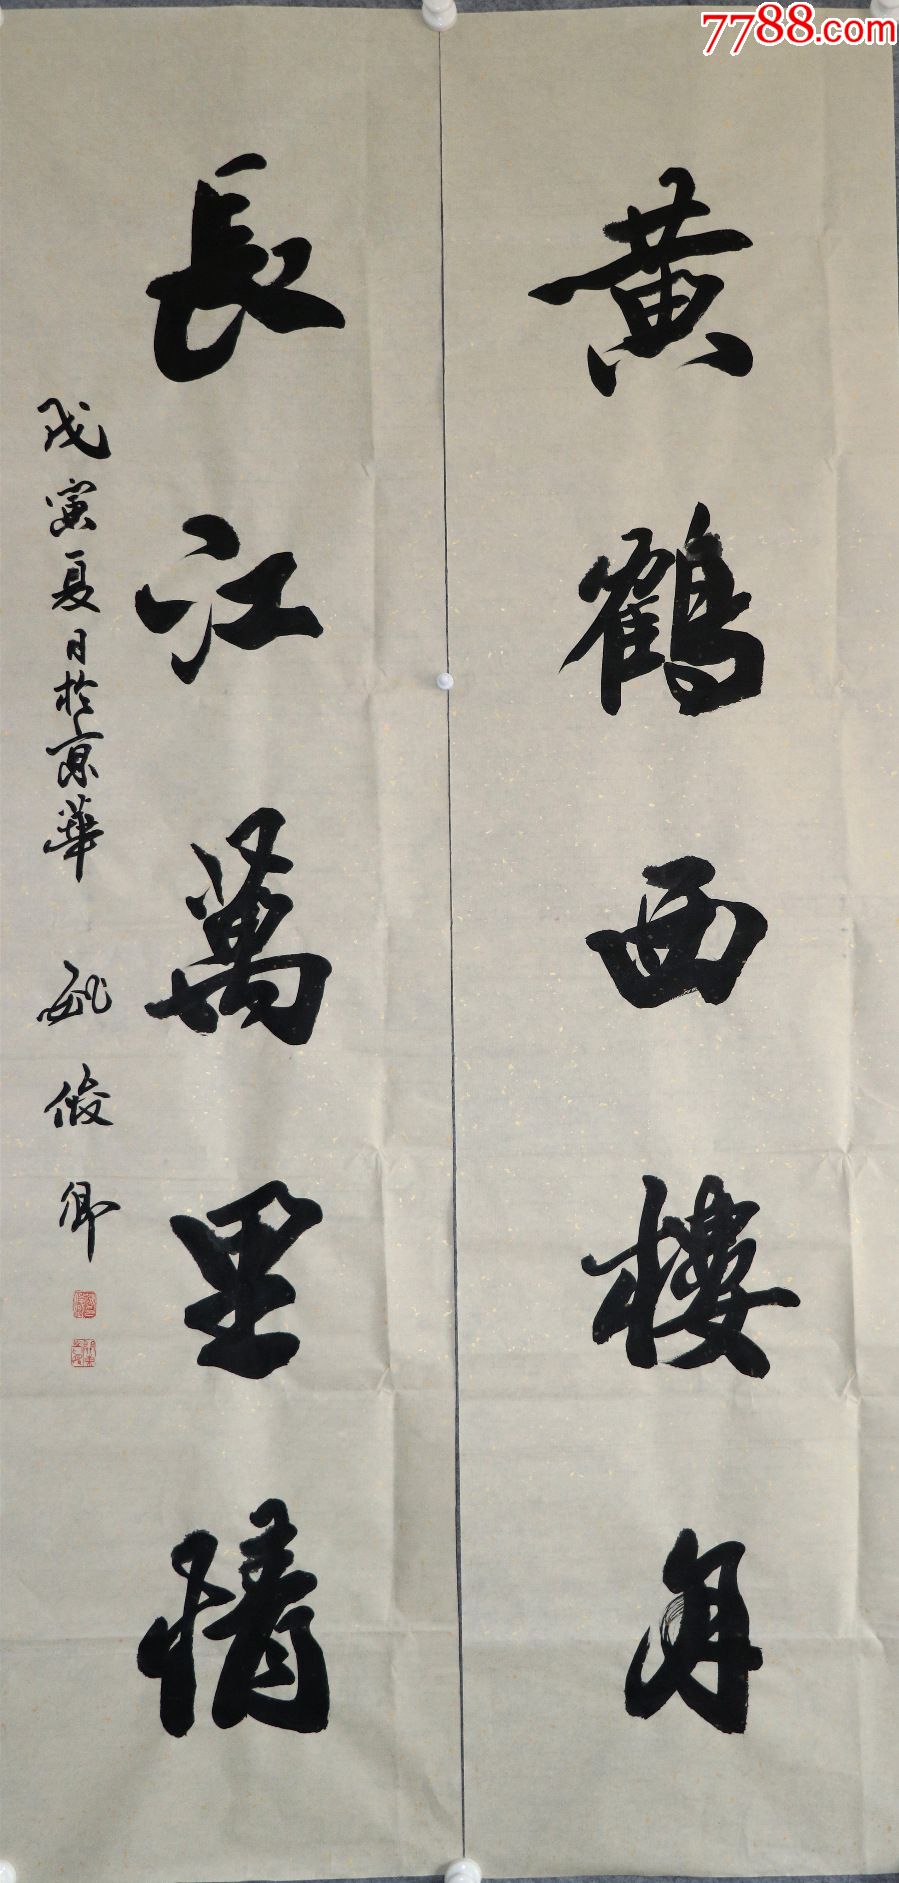 黄鶴西樓月
長江萬里情
戊寅夏日於京華 姚俊卿
7788.com